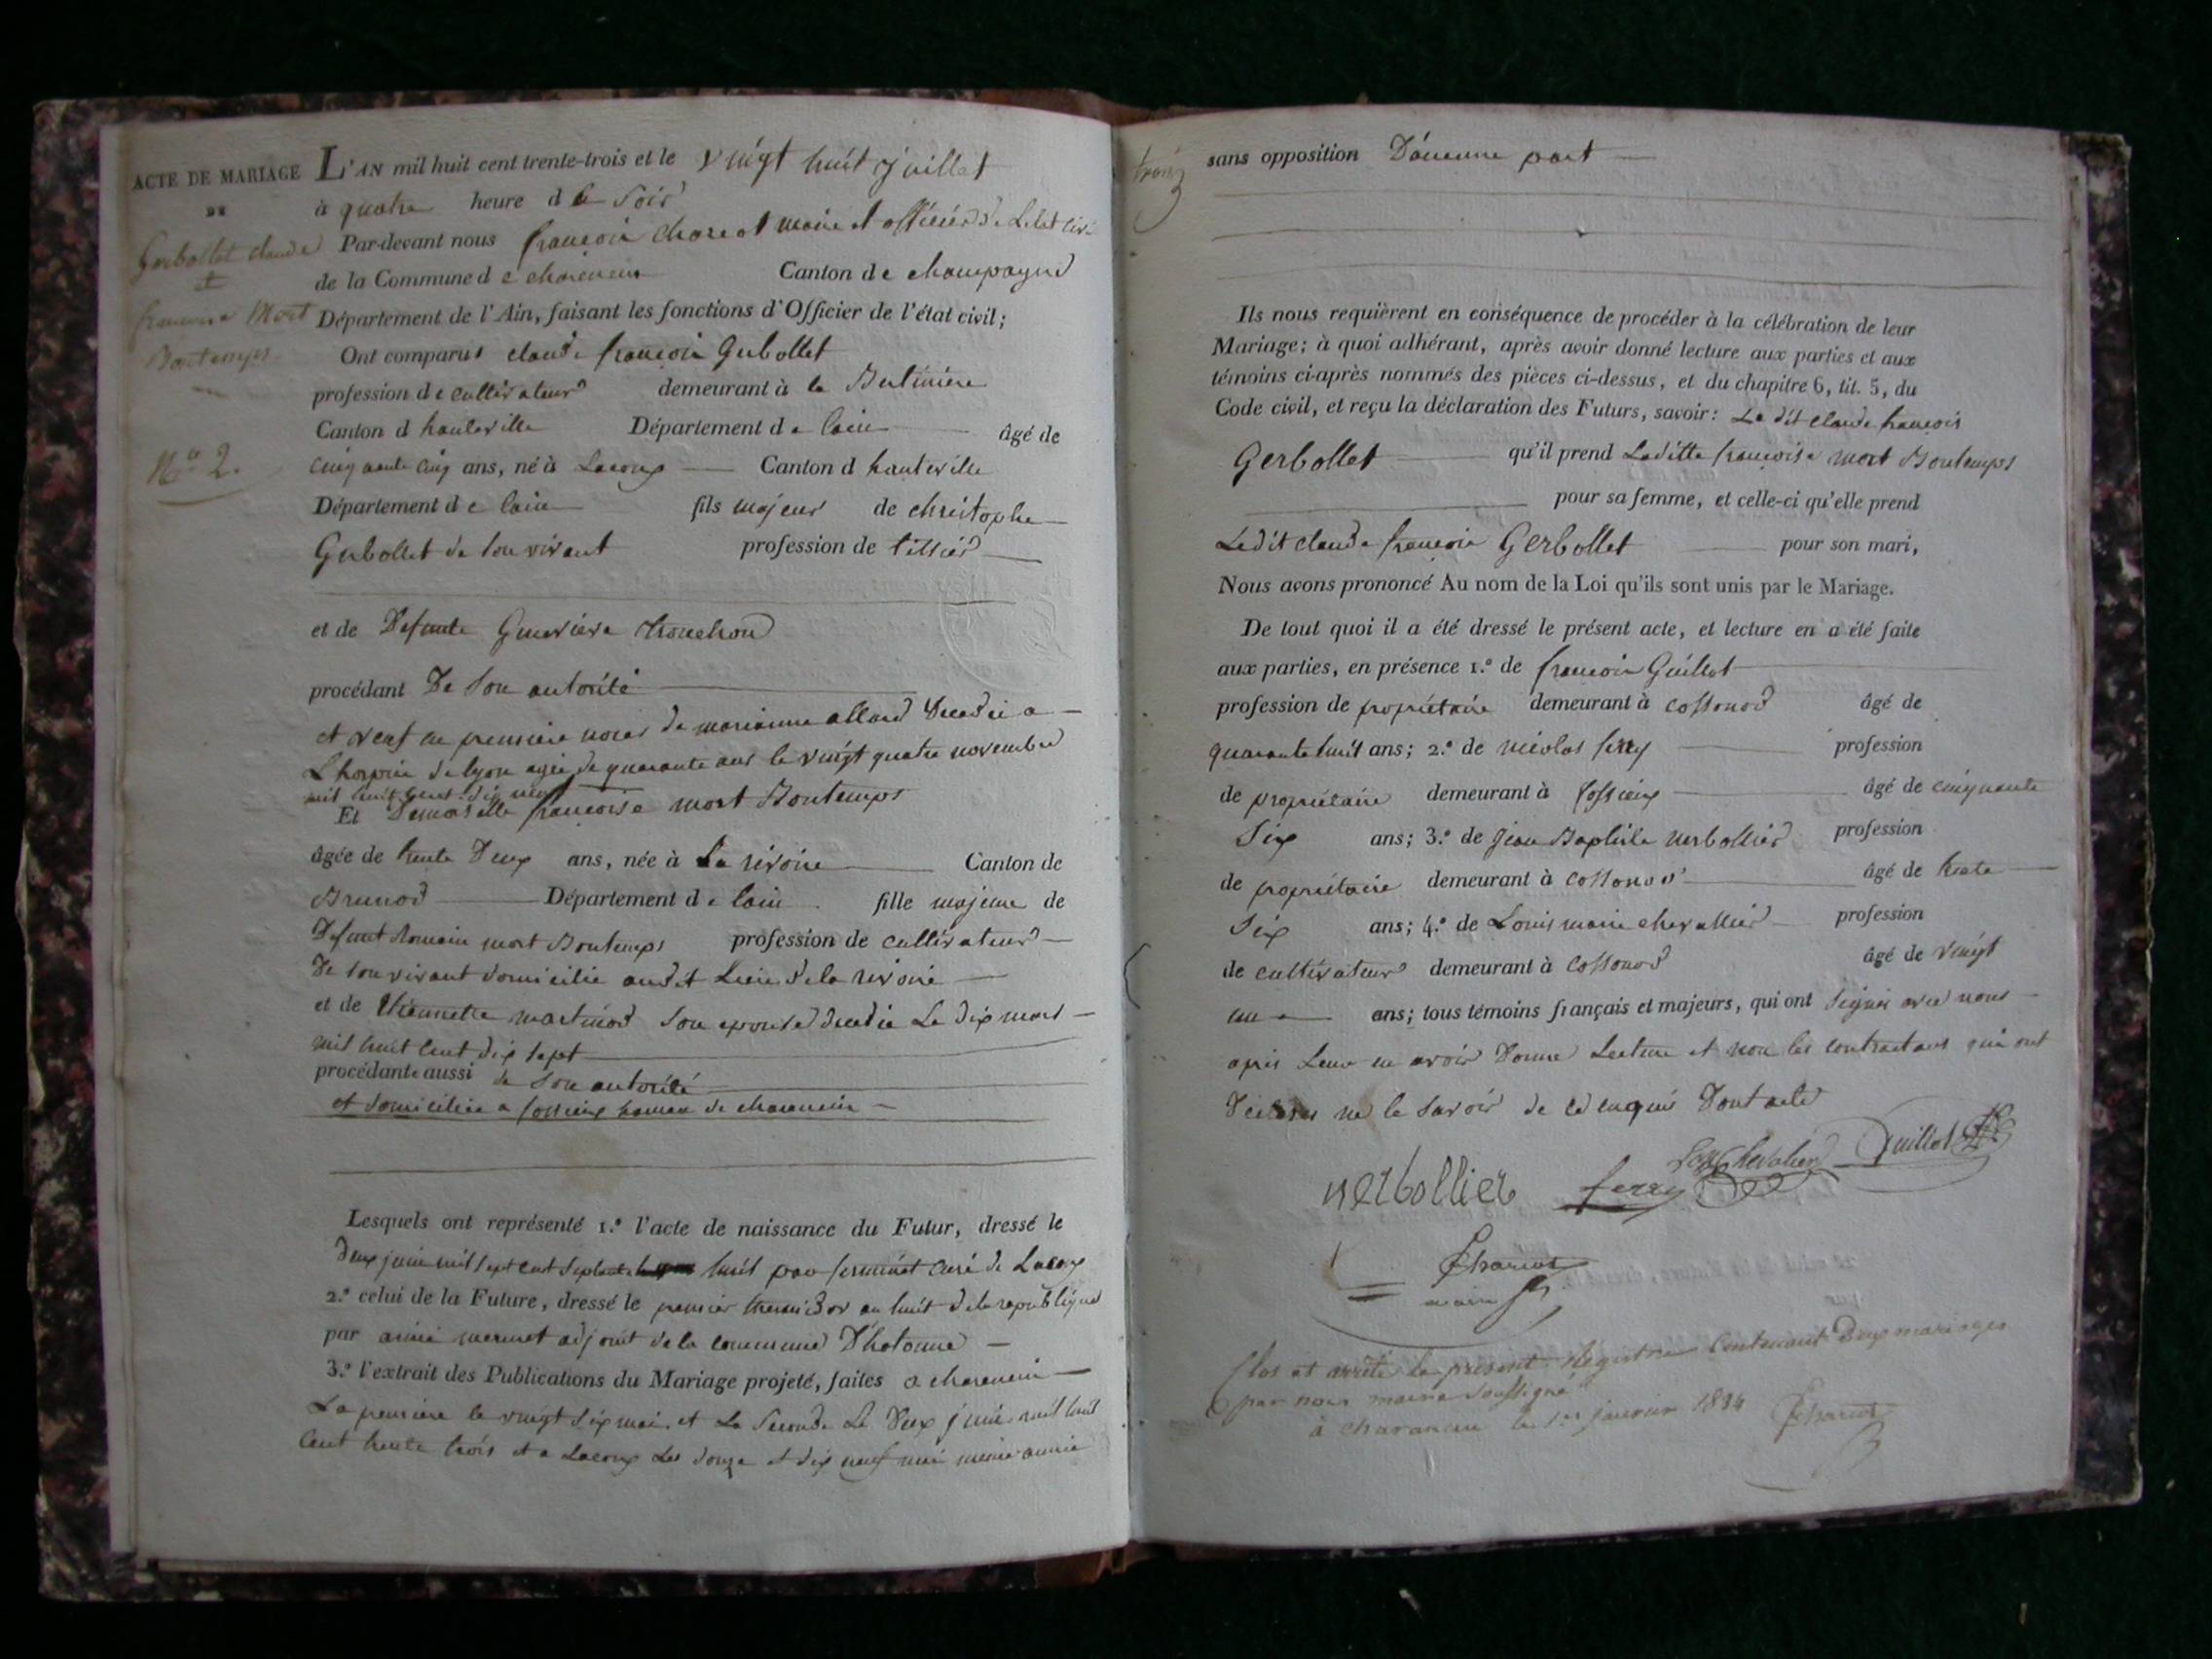 ACTE DE MARIAGE
DE
Gerbollet claude
et
francoise Mort
Bontemps
N.° 2.
L'AN mil huit cent trente-trois et le vingt huit juillet
à quatre heure d u soir
Par-devant nous francois charcot maire et officier de Letat civil
de la Commune d e charencin Canton de champagne
Département de l'Ain, faisant les fonctions d'Officier de l'état civil;
Ont comparus claude francois Gerbollet
profession de cultivateur demeurant à la
Canton d hauteville Département d e lain âgé de
cinquante cinq ans, né à Lacoux Canton d hauteville
Département d e lain fils majeur de christophe
Gerbollet de son vivant profession de tissier
et de Defunte Genevieve trouchon
procédant De son autorité
et veuf en premiere noces de marianne allard decedée a
Lhospice de lyon agée de quarante ans le vingt quatre novembre
mil huit cent dix neuf
Et Demoiselle francoise mort Bontemps
âgée de trente Deux ans, née à La rivoire Canton de
Brenod Département d e lain fille majeure de
Defunt Romain mort Bontemps profession de cultivateur
De son vivant domicilié audit Lieu de la rivoire
et de thiennette martinod son epouse decedée Le dix mars
mil huit cent dix sept
procédante aussi de son autorité
et domiciliée a fossieux hameau de charencin
Lesquels ont représenté 1.° l'acte de naissance du Futur, dressé le
deux juin mil sept cent septante huit par curé de Lacoux
2.° celui de la Future, dressé le premier thermidor an huit de la republique
par aimé mermet adjoint de la commune D'hotonne
3.° l'extrait des Publications du Mariage projeté, faites a charencin
La premiere le vingt six mai et La Seconde Le Deux juin mil huit
cent trente trois et a Lacoux Les douze et dix neuf mai meme année
trois
sans opposition D'aucune part
Ils nous requièrent en conséquence de procéder à la célébration de leur
Mariage; à quoi adhérant, après avoir donné lecture aux parties et aux
témoins ci-après nommés des pièces ci-dessus, et du chapitre 6, tit. 5, du
Code civil, et reçu la déclaration des Futurs, savoir: Le dit claude francois
Gerbollet qu'il prend Laditte francoise mort Bontemps
pour sa femme, et celle-ci qu'elle prend
Ledit claude francois Gerbollet pour son mari,
Nous avons prononcé Au nom de la Loi qu'ils sont unis par le Mariage.
De tout quoi il a été dressé le présent acte, et lecture en a été faite
aux parties, en présence 1.° de francois Guillot
profession de propriétaire demeurant à cossonod âgé de
quarante huit ans; 2.° de nicolas ferry profession
de propriétaire demeurant à fossieux âgé de cinquante
Six ans; 3.° de jean Baptiste nerbollier profession
de propriétaire demeurant à cossonod âgé de trente
Six ans; 4.° de Louis marie chevallier profession
de cultivateur demeurant à cossonod âgé de vingt
un ans; tous témoins français et majeurs, qui ont signés avec nous
après Leur en avoir Donné Lecture et non les contractans qui ont
Declarés ne le savoir de ce enquis Dont acte
nerbollier ferry Chevalier Guillot
Charcot
maire
Clos et arrêté le présent Régistre Contenant Deux mariages
par nous maire soussigné
à charancin le 1er janvier 1834 Charcot